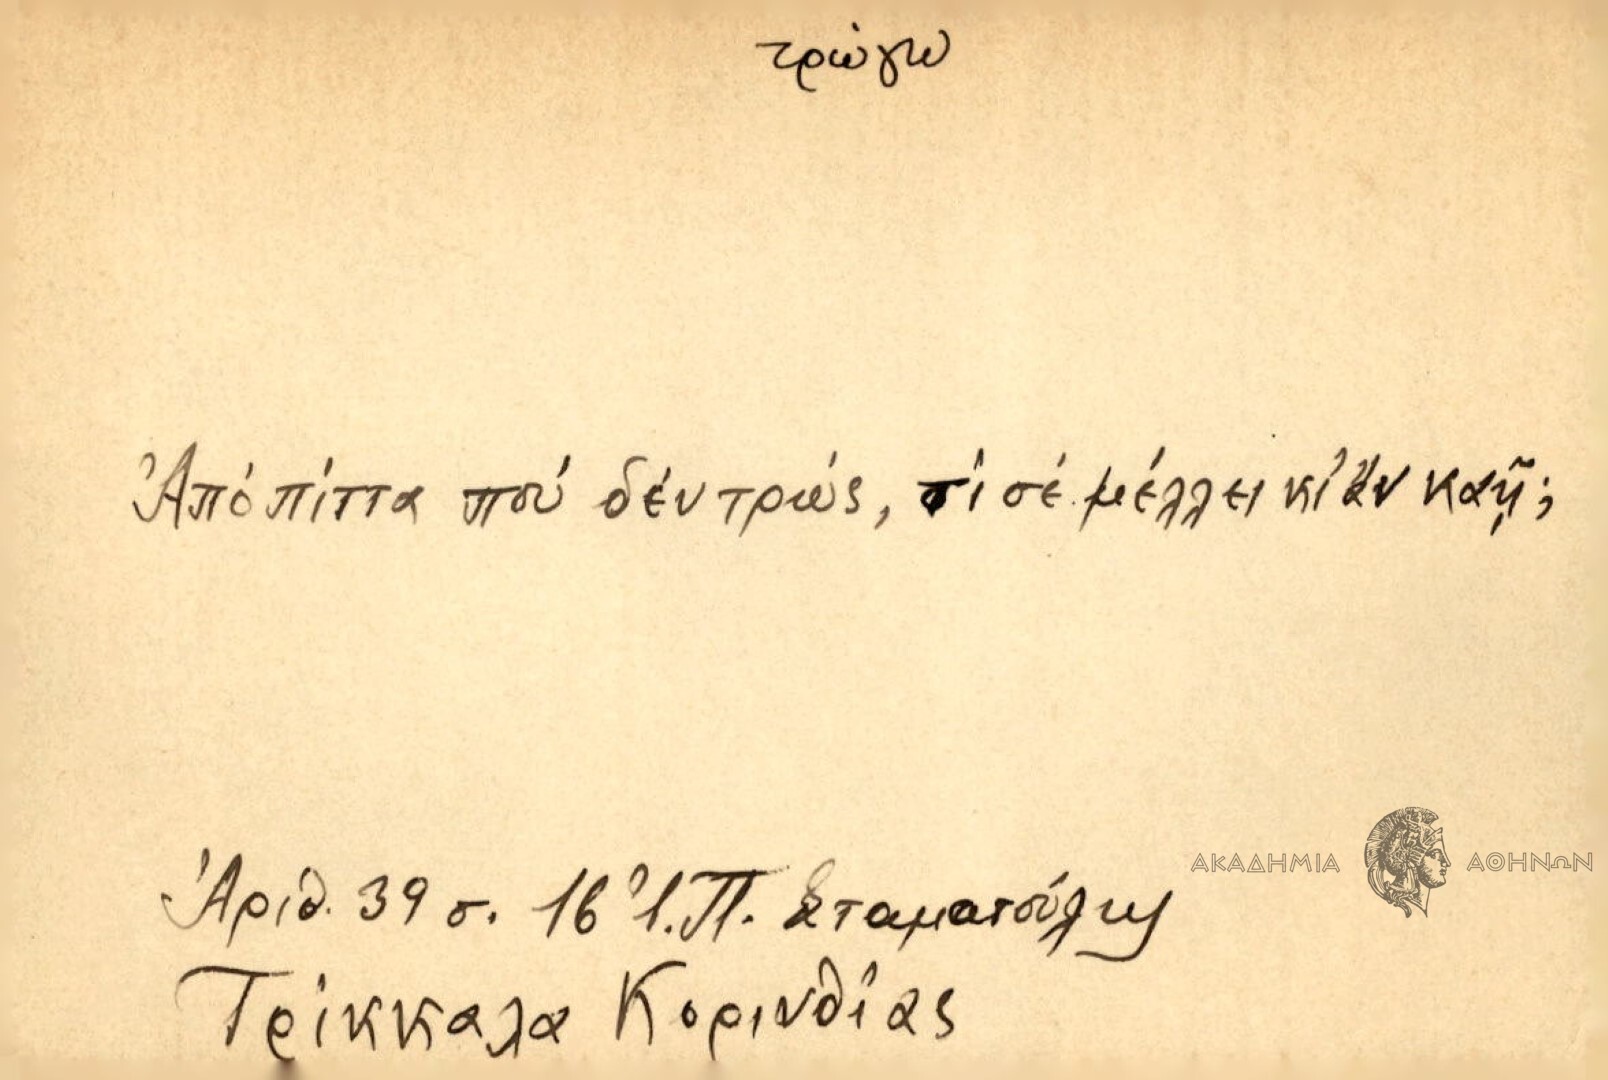 τρώγω
Ἀπό πίττα πού δέν τρώς, τί σέ μέλλει κι' ἄν καῇ;
ΑΚΑΔΗΜΙΑ ΑΘΗΝΩΝ
Ἀριθ. 39 σ. 16 Ἰ. Π. Σταματούλης
Τρίκκαλα Κορινθίας